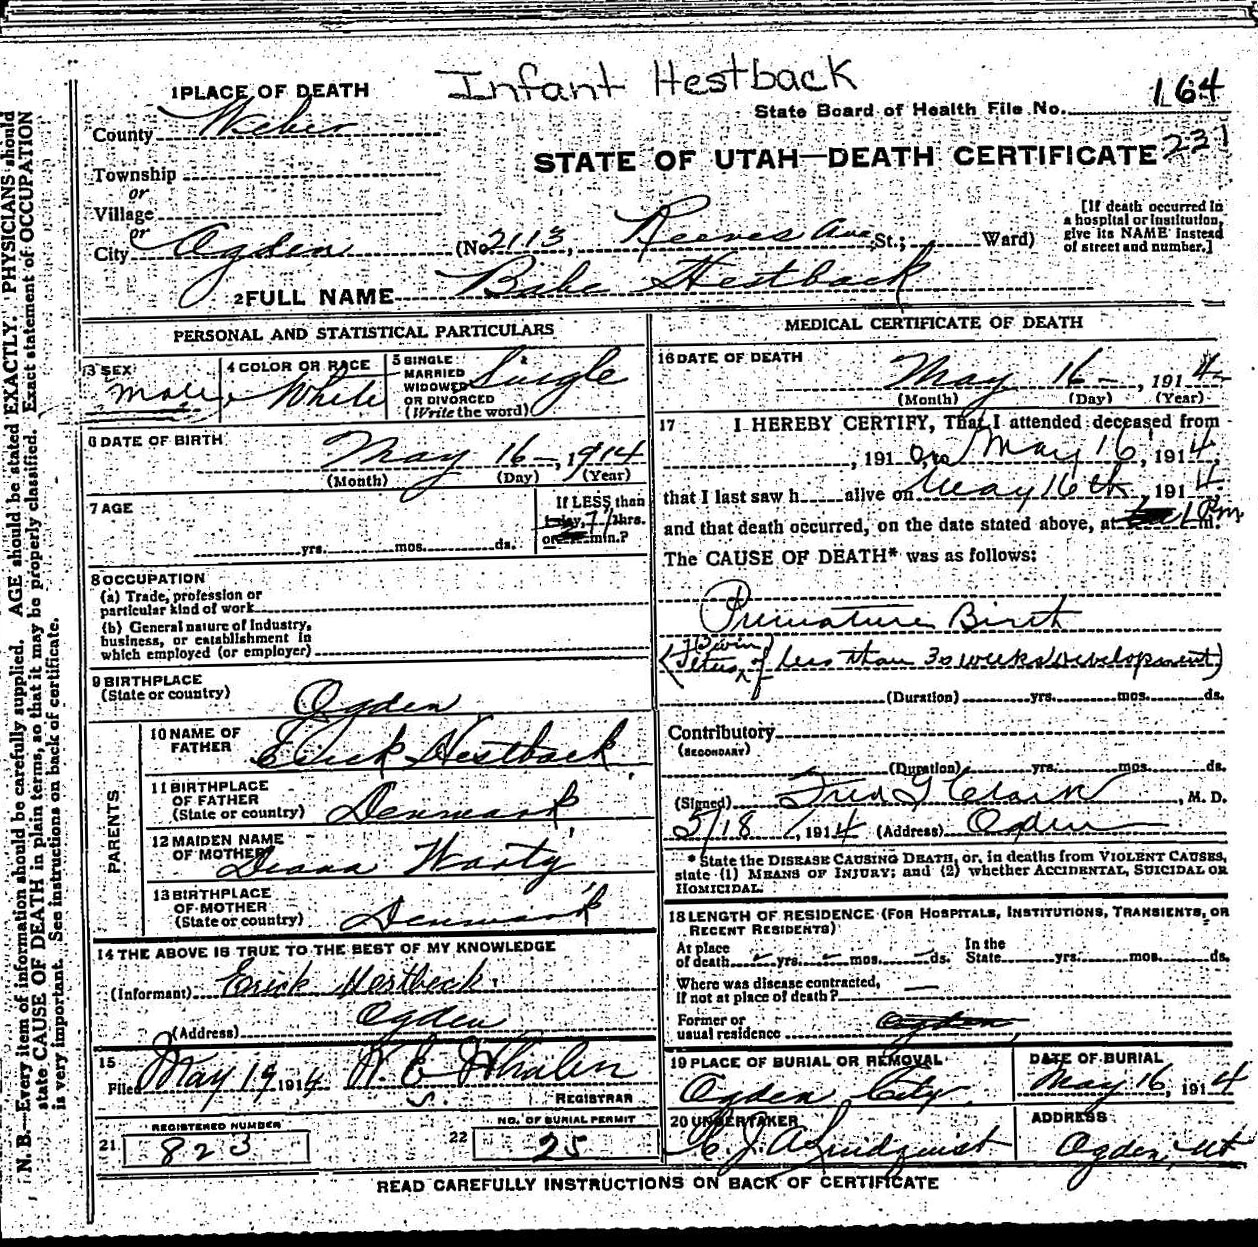 Infant Hestback
1 PLACE OF DEATH
State Board of Health File No. 164
County Weber
231
STATE OF UTAH—DEATH CERTIFICATE
Township
or
Village
or
City Ogden (No. 2113, Reeves Ave St.; Ward)
[If death occurred in
a hospital or institution,
give its NAME instead
of street and number.]
2 FULL NAME Babe Hestback
PERSONAL AND STATISTICAL PARTICULARS
3 SEX
Male
4 COLOR OR RACE
White
5 SINGLE
MARRIED
WIDOWED
OR DIVORCED
(Write the word)
Single
6 DATE OF BIRTH
May 16-, 1914
(Month) (Day) (Year)
7 AGE
yrs. mos. ds.
If LESS than
1 day, hrs.
or min.?
8 OCCUPATION
(a) Trade, profession or
particular kind of work
(b) General nature of industry,
business, or establishment in
which employed (or employer)
9 BIRTHPLACE
(State or country)
Ogden
PARENTS
10 NAME OF
FATHER
Erick Hestback
11 BIRTHPLACE
OF FATHER
(State or country)
Denmark
12 MAIDEN NAME
OF MOTHER
13 BIRTHPLACE
OF MOTHER
(State or country)
Denmark
14 THE ABOVE IS TRUE TO THE BEST OF MY KNOWLEDGE
(Informant) Erick Hestbeck
(Address) Ogden
15
Filed May 19 1914 W. E. Whalen
REGISTRAR
21 REGISTERED NUMBER
823
22 NO. OF BURIAL PERMIT
25
MEDICAL CERTIFICATE OF DEATH
16 DATE OF DEATH
May 16-, 1914
(Month) (Day) (Year)
17 I HEREBY CERTIFY, That I attended deceased from
, 191 on May 16, 1914,
that I last saw h alive on May 16th, 1914
and that death occurred, on the date stated above, at 1 Pm.
The CAUSE OF DEATH* was as follows:
Premature Birth
(Twin
Fetus of less than 30 weeks development)
(Duration) yrs. mos. ds.
Contributory
(SECONDARY)
(Duration) yrs. mos. ds.
(Signed) Fred G Clark, M. D.
5/18, 1914 (Address) Ogden
* State the DISEASE CAUSING DEATH, or, in deaths from VIOLENT CAUSES,
state (1) MEANS OF INJURY; and (2) whether ACCIDENTAL, SUICIDAL OR
HOMICIDAL.
18 LENGTH OF RESIDENCE (FOR HOSPITALS, INSTITUTIONS, TRANSIENTS, OR
RECENT RESIDENTS)
At place
of death yrs. mos. ds. In the
State yrs. mos. ds.
Where was disease contracted,
if not at place of death?
Former or
usual residence Ogden
19 PLACE OF BURIAL OR REMOVAL
Ogden City.
DATE OF BURIAL
May 16, 1914
20 UNDERTAKER
C. J. A. Lindquist
ADDRESS
Ogden, Ut
READ CAREFULLY INSTRUCTIONS ON BACK OF CERTIFICATE
N. B.—Every item of information should be carefully supplied. AGE should be stated EXACTLY. PHYSICIANS should
state CAUSE OF DEATH in plain terms, so that it may be properly classified. Exact statement of OCCUPATION
is very important. See instructions on back of certificate.